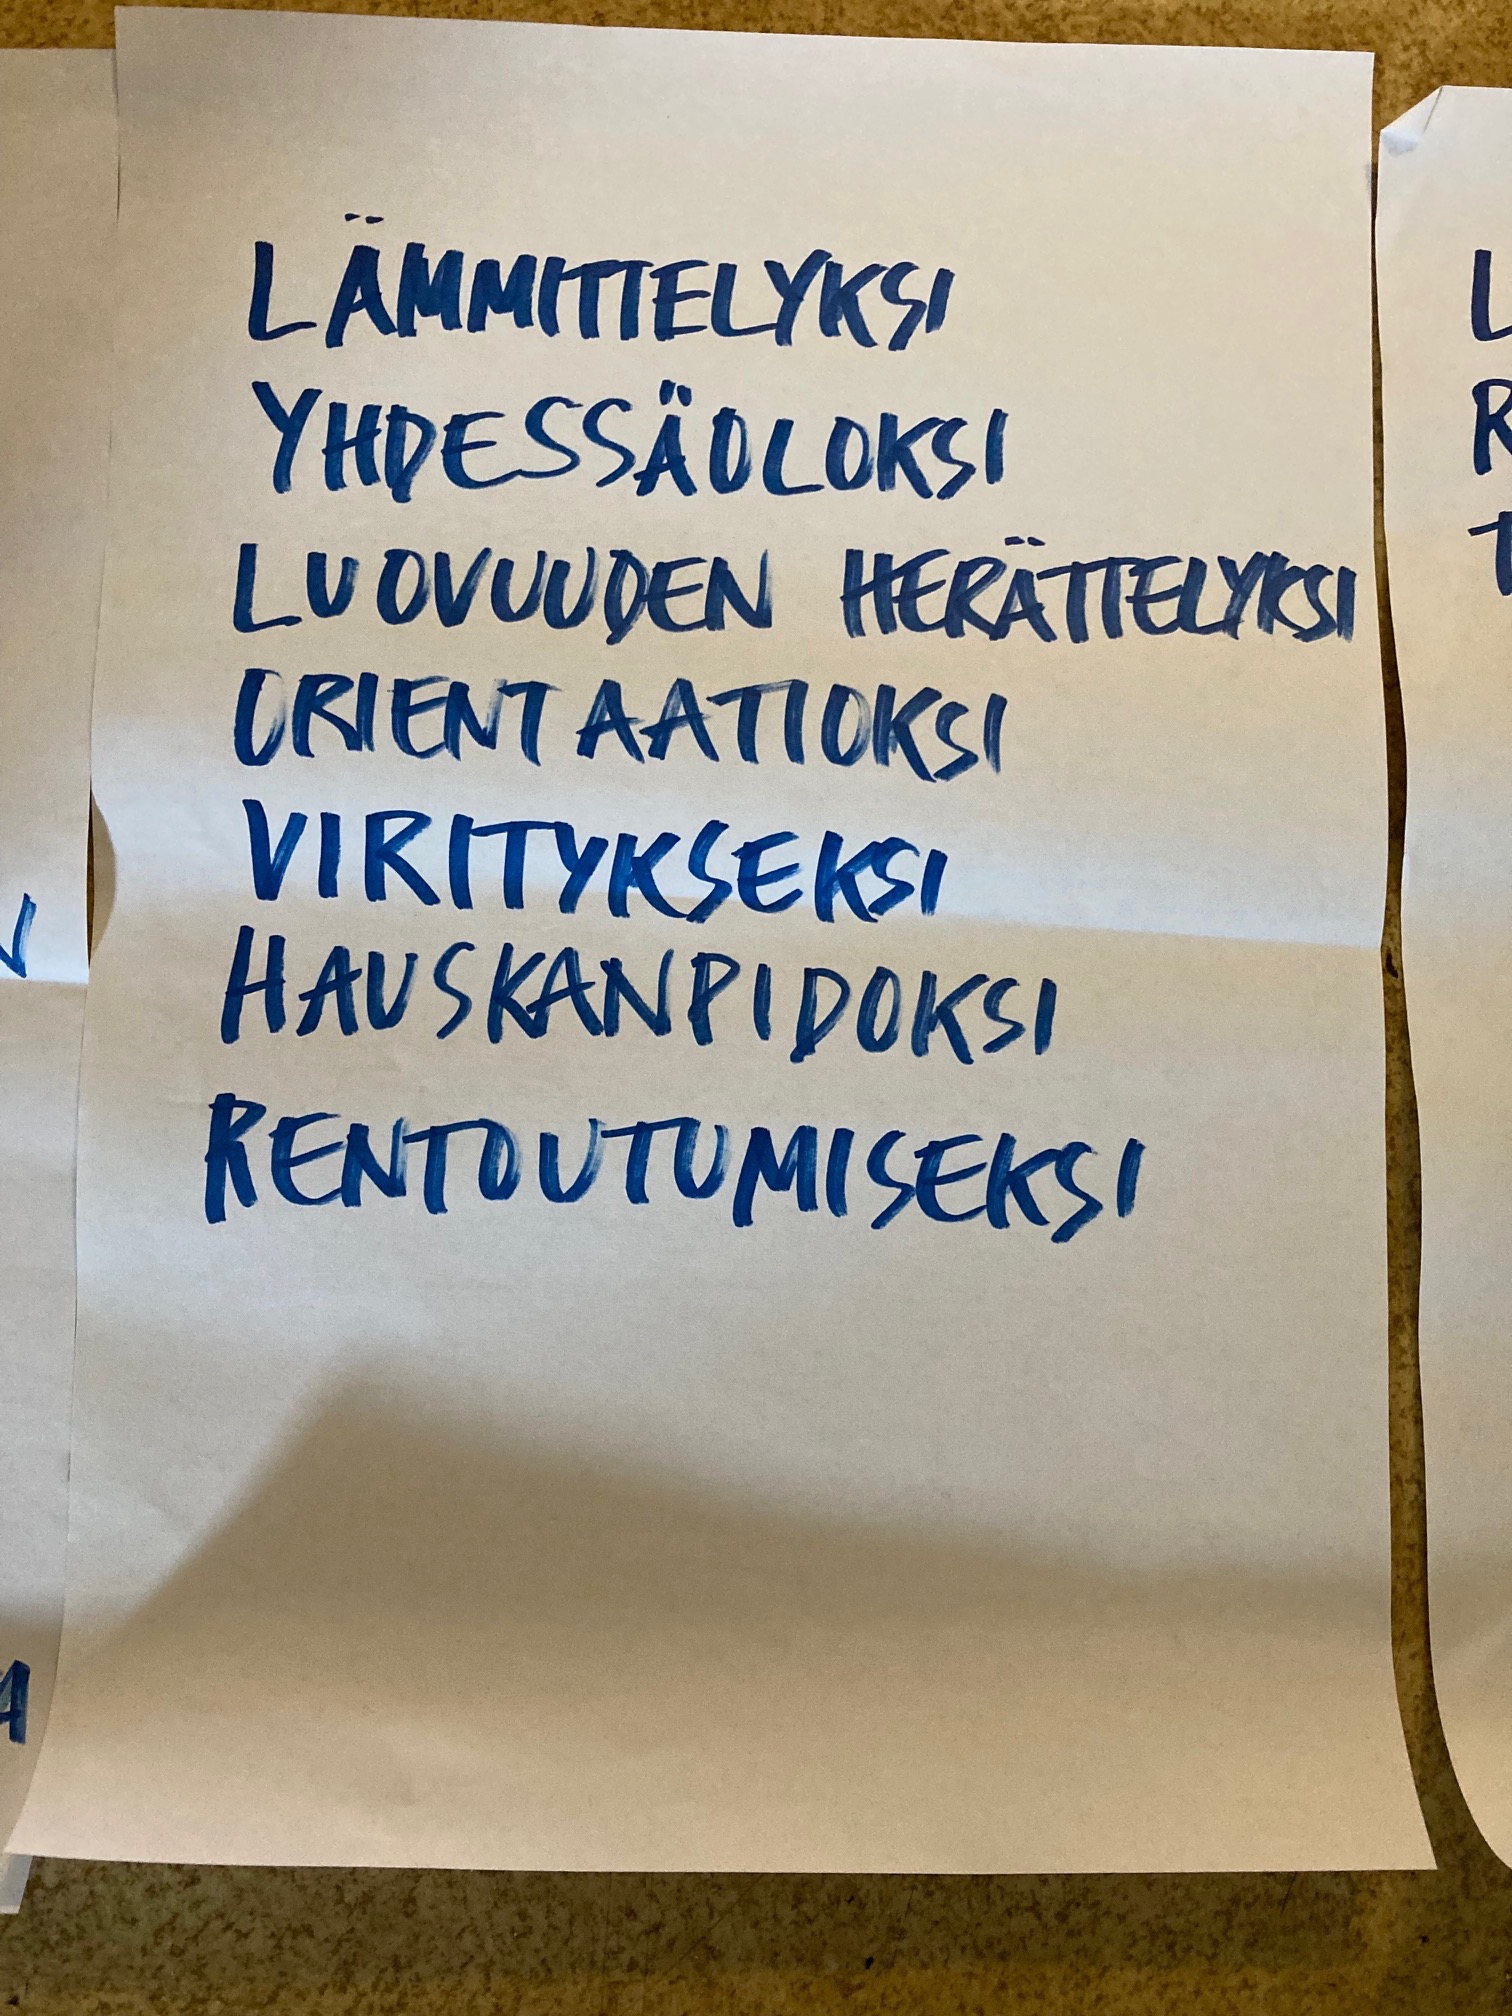 LÄMMITTELYKSI
YHDESSÄOLOKSI
LUOVUUDEN HERÄTTELYKSI
ORIENTAATIOKSI
VIRITYKSEKSI
HAUSKANPIDOKSI
RENTOUTUMISEKSI